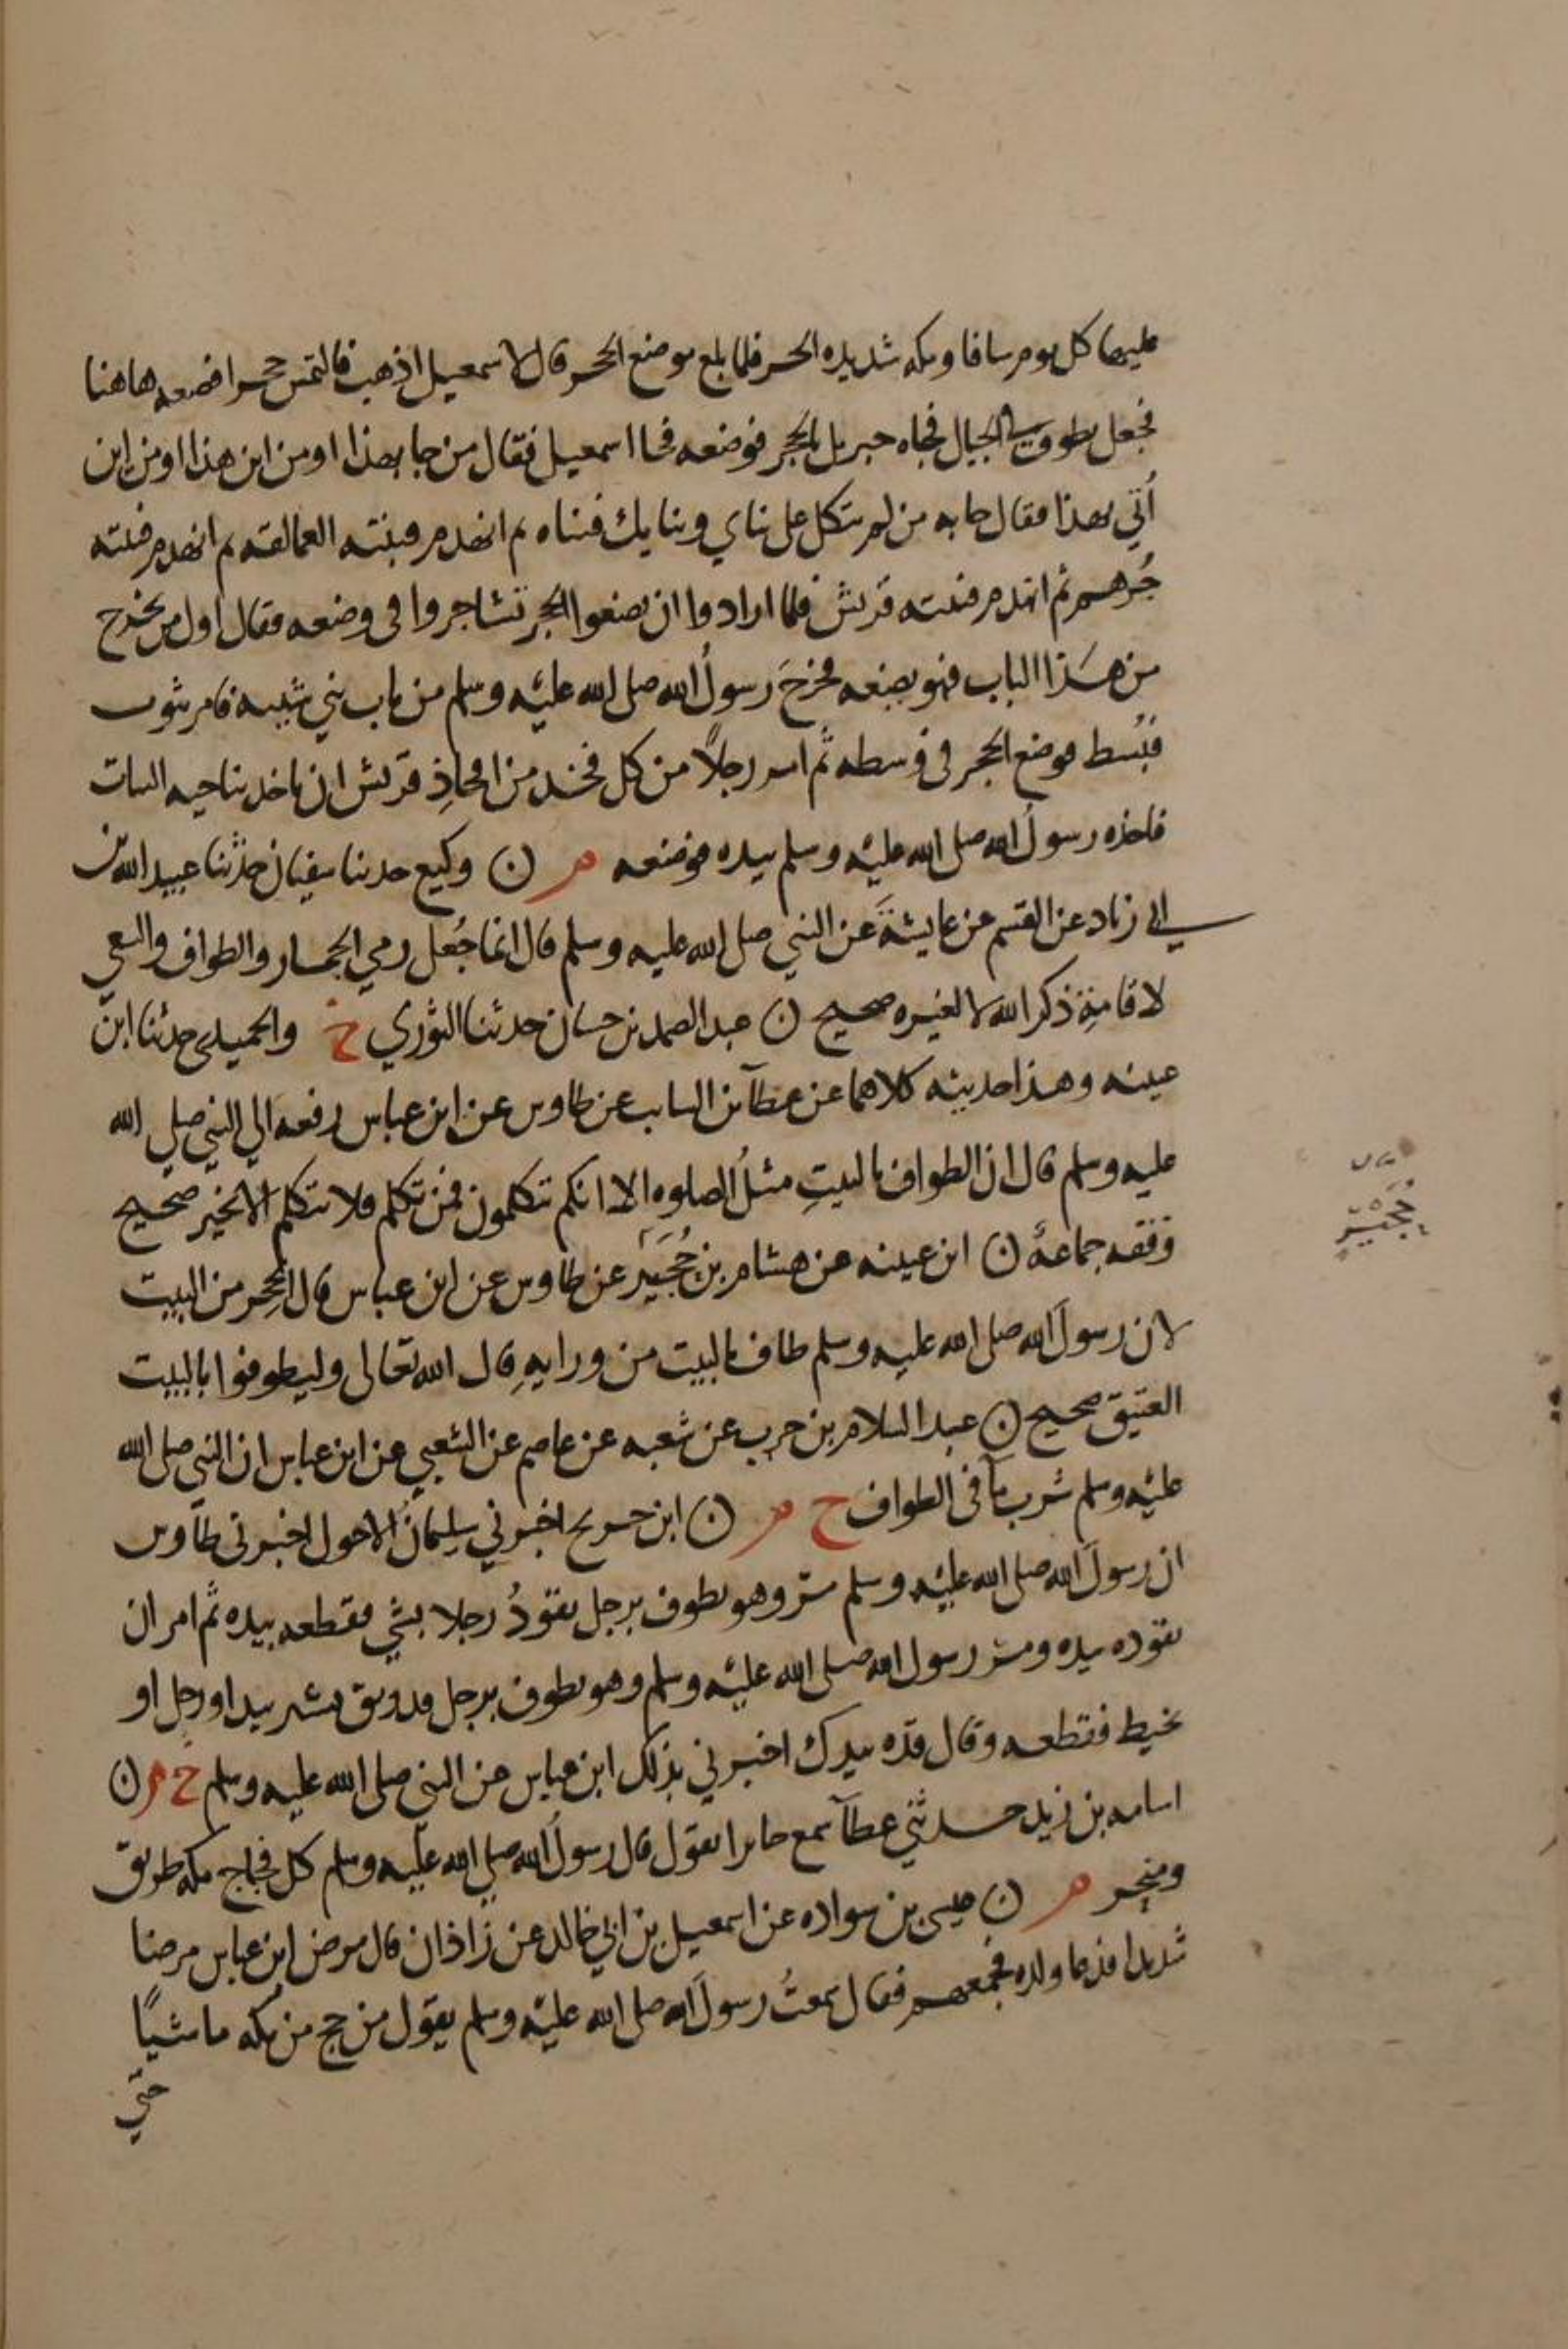 عليهما كل يوم سافا ومكه شديده الحر فلما بلغ موضع الحجر قال لاسمعيل اذهب فالتمس حجرا فضعه هاهنا
فجعل يطوف في الجبال فجاه جبريل بالحجر فوضعه فجا اسمعيل فقال من جا بهذا او من اين هذا او من اين
أُتي بهذا فقال جا به من لم يتكل على بناي وبنايك فبناه ثم انهدم فبنته العمالقه ثم انهدم فبنته
جُرهم ثم انهدم فبنته قريش فلما ارادوا ان يضعوا الحجر تشاجروا في وضعه فقال اول من يخرج
من هذا الباب فهو يضعه فخرجَ رسولُ الله صلى الله عليه وسلم من باب بني شيبه فامر بثوب
فبُسط فوضع الحجر في وسطه ثم امر رجلاً من كل فخذ من افخاذِ قريش ان ياخذ بناحيه الثياب
فاخذه رسولُ الله صلى الله عليه وسلم بيده فوضعه م ن وكيع حدثنا سفيان حدثنا عبيد الله بن
ابي زياد عن القسم عن عايشةَ عن النبي صلى الله عليه وسلم قال انما جُعل رمي الجمار والطواف والسعي
لاقامةِ ذكر الله لا لغيره صحيح ن عبد الصمد بن حسان حدثنا الثوري ح والحميدي حدثنا ابن
عيينه وهذا حديثه كلاهما عن عطآ بن السايب عن طاوس عن ابن عباس رفعه الي النبي صلي الله
عليه وسلم قال ان الطواف بالبيتِ مثلُ الصلوه الا انكم تتكلمون فمن تكلم فلا يتكلم الا بخير صحيح
وقفه جماعةٌ ن ابن عيينه عن هشام بن حُجَير عن طاوس عن ابن عباس قال الحِجر من البيت
لان رسولَ الله صلى الله عليه وسلم طاف بالبيت من ورايهِ قال الله تعالى وليطوفوا بالبيت
العتيق صحيح ن عبد السلام بن حرب عن شعبه عن عاصم عن الشعبي عن ابن عباس ان النبي صلى الله
عليه وسلم شرب مآ في الطواف ح م ن ابن جريج اخبرني سليمانُ الاحول اخبرني طاوس
ان رسولَ الله صلى الله عليه وسلم مرّ وهو يطوف برجل يقودُ رجلا بشي فقطعه بيده ثم امر ان
يقوده بيده ومر رسول الله صلى الله عليه وسلم وهو يطوف برجل قد وثق بسير يدا او رجل او
بخيط فقطعه وقال قده بيدك اخبرني بذلك ابن عباس عن النبي صلى الله عليه وسلم خ م ن
اسامه بن زيد حدثني عطآ سمع جابرا يقول قال رسولُ الله صلي الله عليه وسلم كل فجاج مكه طريق
ومنحر م ن عيسى بن سواده عن اسمعيل بن ابي خالد عن زاذان قال مرض ابن عباس مرضا
شديدا فدعا ولده فجمعهم فقال سمعتُ رسولَ الله صلى الله عليه وسلم يقول من حج من مكه ماشيًا
حتي
حُجَيْر